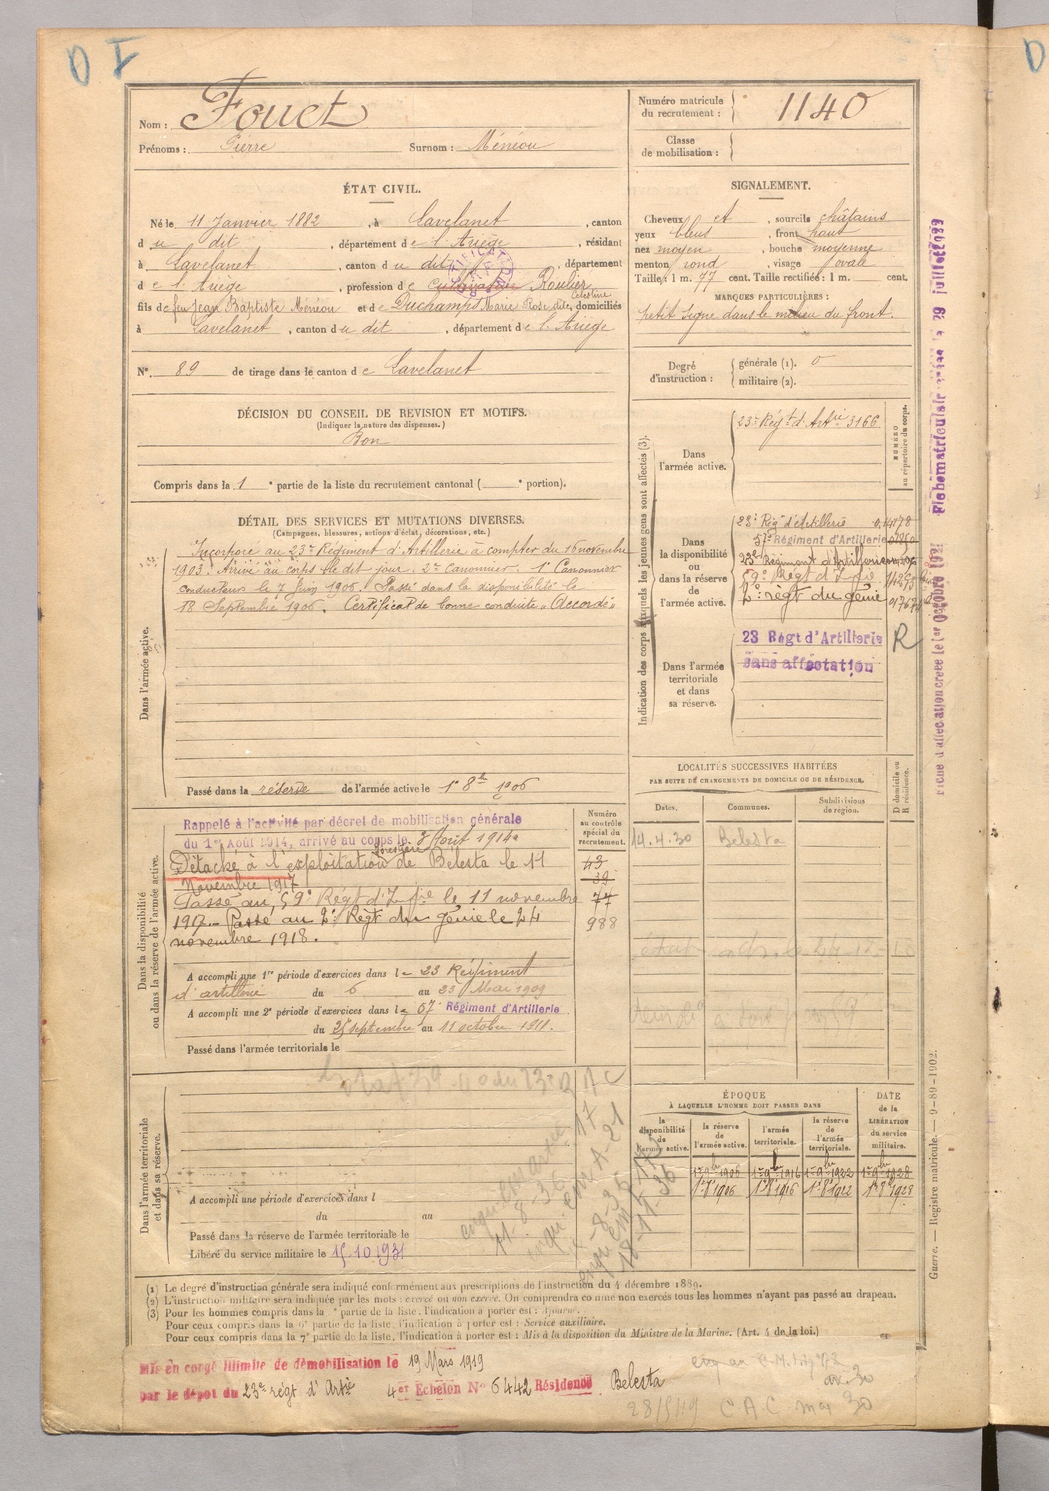 D I
Nom : Fouet
Prénoms : Pierre Surnom : Ménéou
Numéro matricule du recrutement : 1140
Classe de mobilisation :
ÉTAT CIVIL.
Né le 11 Janvier 1882, à Lavelanet, canton
du dit, département de l'Ariège, résidant
à Lavelanet, canton du dit, département
de l'Ariège, profession de cultivateur Roulier
fils de feu Jean Baptiste Ménéou et de Duchamps Marie Rose dite Célestine, domiciliés
à Lavelanet, canton du dit, département de l'Ariège
N° 89 de tirage dans le canton de Lavelanet
SIGNALEMENT.
Cheveux et, sourcils châtains
yeux bleus, front haut
nez moyen, bouche moyenne
menton rond, visage ovale
Taille : 1 m. 77 cent. Taille rectifiée : 1 m. cent.
MARQUES PARTICULIÈRES :
petit signe dans le milieu du front.
Degré d'instruction : générale (1). 0
militaire (2).
DÉCISION DU CONSEIL DE REVISION ET MOTIFS.
(Indiquer la nature des dispenses.)
Bon
Compris dans la 1e partie de la liste du recrutement cantonal ( e portion).
DÉTAIL DES SERVICES ET MUTATIONS DIVERSES.
(Campagnes, blessures, actions d'éclat, décorations, etc.)
Dans l'armée active.
Incorporé au 23me Régiment d'Artillerie à compter du 16 novembre
1903. Arrivé au corps le dit jour. 2me Canonnier. 1er Canonnier
conducteur le 7 Juin 1905. Passé dans la disponibilité le
18 Septembre 1906. Certificat de bonne conduite "Accordé"
Passé dans la réserve de l'armée active le 1er 8bre 1906
Indication des corps auxquels les jeunes gens sont affectés (3).
NUMÉRO au répertoire du corps.
Dans l'armée active.
23e Régt d'Artie 3166
Dans la disponibilité ou dans la réserve de l'armée active.
23e Régt d'Artillerie
57e Régiment d'Artillerie
23e Régiment d'Artillerie
59e Régt d'Infie
2e régt du génie
Dans l'armée territoriale et dans sa réserve.
23 Régt d'Artillerie R
sans affectation
Dans la disponibilité ou dans la réserve de l'armée active.
Rappelé à l'activité par décret de mobilisation générale
du 1er Août 1914, arrivé au corps le 3 Août 1914
Détaché à l'exploitation forestière de Bélesta le 11
Novembre 1917
Passé au 59e Régt d'Infie le 11 novembre
1917. Passé au 2e Régt du génie le 24
novembre 1918.
Numéro au contrôle spécial du recrutement.
43
39
77
988
A accompli une 1re période d'exercices dans le 23 Régiment
d'artillerie du 6 au 23 Mai 1909
A accompli une 2e période d'exercices dans le 57 Régiment d'Artillerie
du 25 septembre au 11 octobre 1911.
Passé dans l'armée territoriale le
LOCALITÉS SUCCESSIVES HABITÉES
PAR SUITE DE CHANGEMENTS DE DOMICILE OU DE RÉSIDENCE.
Dates. Communes. Subdivisions de region. D domicile ou R résidence.
14.4.30 Belesta
Dans l'armée territoriale et dans sa réserve.
A accompli une période d'exercices dans l
du au
Passé dans la réserve de l'armée territoriale le
Libéré du service militaire le 15.10.1931
ÉPOQUE
À LAQUELLE L'HOMME DOIT PASSER DANS
la disponibilité de l'armée active. la réserve de l'armée active. l'armée territoriale. la réserve de l'armée territoriale. DATE de la LIBÉRATION du service militaire.
1er 9bre 1906 1er 9bre 1916 1er 9bre 1922 1er 9bre 1928
1er 8bre 1906 1er 8bre 1916 1er 8bre 1922 1er 8bre 1928
(1) Le degré d'instruction générale sera indiqué conformément aux prescriptions de l'instruction du 4 décembre 1889.
(2) L'instruction militaire sera indiquée par les mots : exercé ou non exercé. On comprendra comme non exercés tous les hommes n'ayant pas passé au drapeau.
(3) Pour les hommes compris dans la e partie de la liste, l'indication à porter est : Ajourné.
Pour ceux compris dans la 6e partie de la liste, l'indication à porter est : Service auxiliaire.
Pour ceux compris dans la 7e partie de la liste, l'indication à porter est : Mis à la disposition du Ministre de la Marine. (Art. 4 de la loi.)
Mis en congé illimité de démobilisation le 19 Mars 1919
par le dépôt du 23e régt d'Artie 4er Echelon N° 6442 Résidence Belesta
28/5/19 C A C mai 30
Guerre. — Registre matricule. — 9-89-1902.
Fiche d'affectation créée le 1er Octobre 1921
Fiche matriculaire créée le 29 juillet 1929